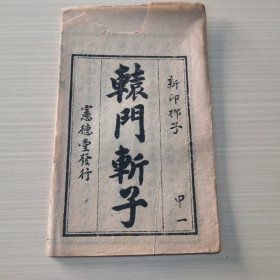 新印梆子
甲一
轅門斬子
憲德堂發行